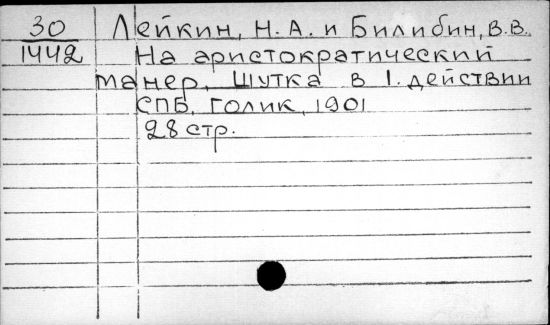 30
1442
Лейкин, Н. А. и Билибин, В.В.
На аристократический
манер. Шутка в 1. действии
СПБ, Голик, 1901
28 стр.